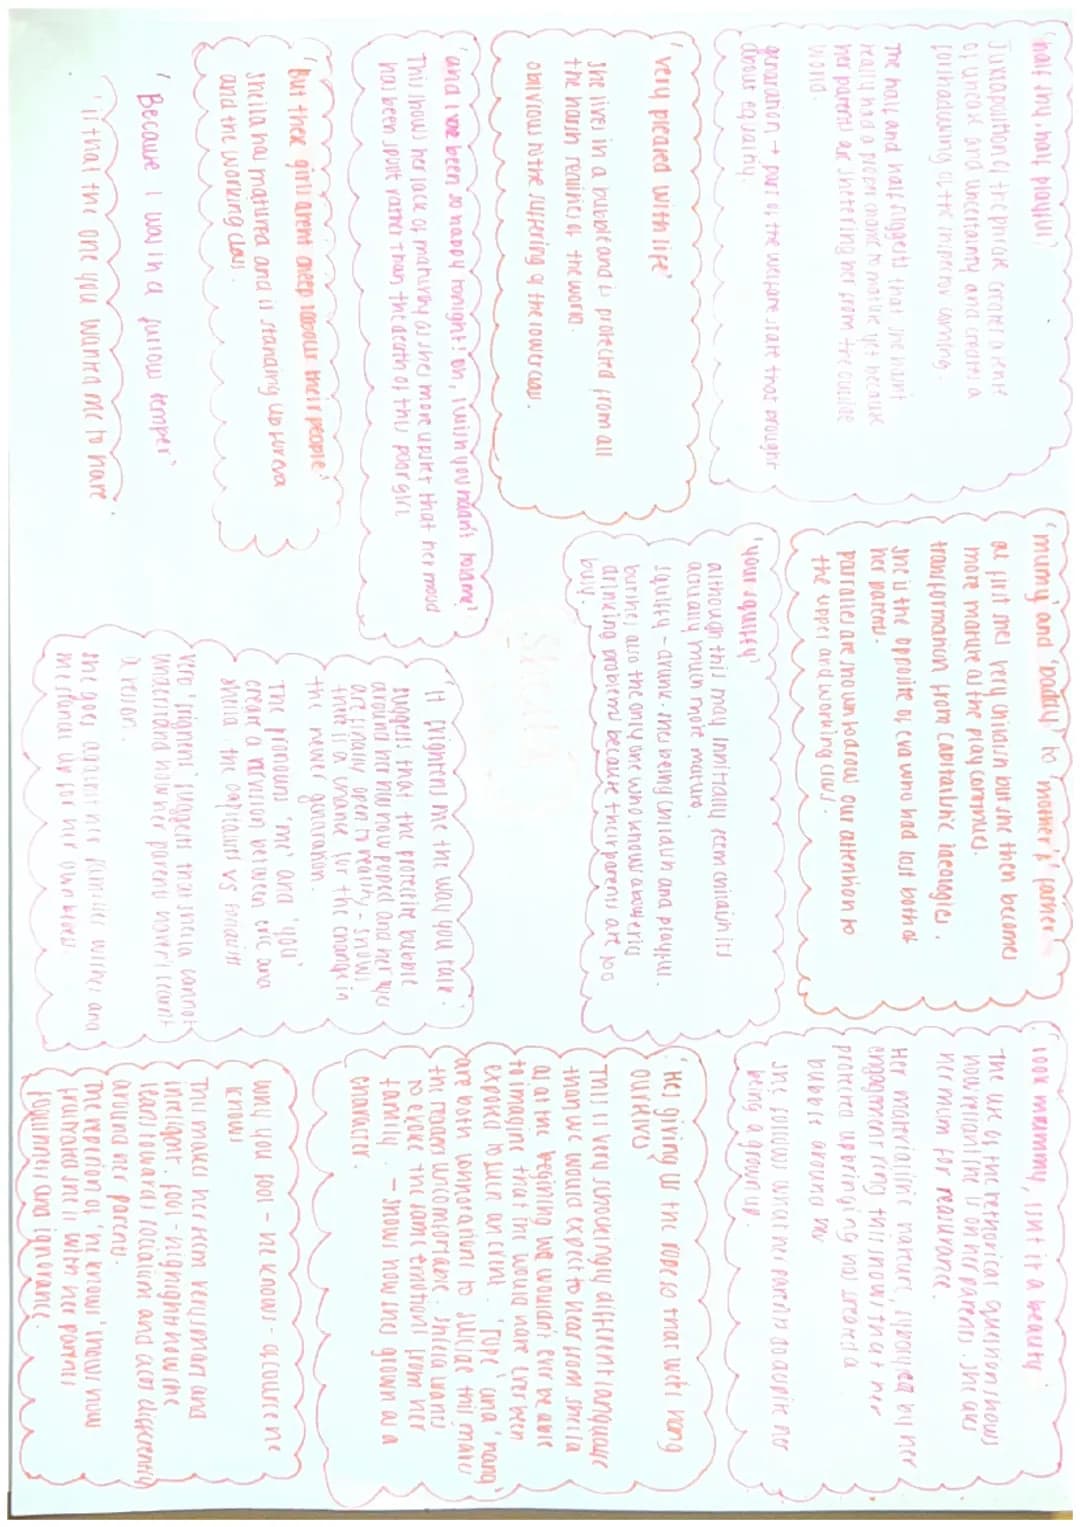 'half shy, half playful'
Juxaposition of the phrase creates a sense
of unease and uncertainty and creates a
forshadowing of the inspector coming.
The half and half suggests that she hasnt
really had a proper chance to mature yet because
her parents are sheltering her from the outside
world.
genaration + part of the welfare state that brought
about equality.
'very pleased with life'
she lives in a bubble and is protected from all
the harsh realities of the world.
oblivious to the suffering of the lower class.
'and i've been so happy tonight! oh, I wish you hadn't told me'
This shows her lack of maturity as shes more upset that her mood
has been spoilt rather than the death of this poor girl
'But these girls arent cheap labour their people.'
Sheila has matured and is standing up for eva
and the working class.
'Because I was in a furious temper'
'is that the one you wanted me to have'
'mumy' and 'daddy' to 'mother' & 'father'
at first shes very childish but she then becomes
more mature as the play continues.
transformation from capitalistic ideologies.
she is the opposite of eva who had lost both of
her parents.
parralles are shown to draw our attention to
the upper and working class.
'your squiffy'
although this may innitially seem childish its
actually much more mature.
squiffy - drunk. shes being childish and playful.
but she's also the only one who knows about erics
drinking problems because their parents are too
busy.
Sheila
'It frightens me the way you talk'
suggests that the protective bubble
around her has now poped and her eyes
are finally open to reality - shows
there is a chance for the change in
the newer genaration.
The pronouns 'me' and 'you'
create a division between eric and
sheila : the capitalists vs socialists
verb 'frightens' suggests that sheila cannot
understand how her parents haven't learnt
a lesson.
she goes against her families wishes and
she stands up for her own beliefs.
'look mummy, isnt it a beauty'
The use of the rethorical question shows
how reliant she is on her parents. she asks
her mum for reasurance.
Her materialistic nature, displayed by her
engagement ring this shows that her
protected upbringing has created a
bubble around her
she follows what her parents do despite her
being a grown up.
'Hes giving us the rope so that we'll hang
ourselves'
This is very shockingly different language
than we would expect to hear from sheila
as at the begining we wouldn't ever be able
to imagine that she would have ever been
exposed to such an event. 'rope' and 'hang'
are both connotations to suicide this makes
the readers uncomfortable. sheila wants
to evoke the same emotions from her
family - shows how shes grown as a
character.
why you fool - he knows - of course he
knows
This makes her seem very smart and
inteligent. fool - highlights how she
leans towards socialism and acts differently
around her parents.
The repetition of 'he knows' shows how
frustrated she is with her parents
foolishness and ignorance.